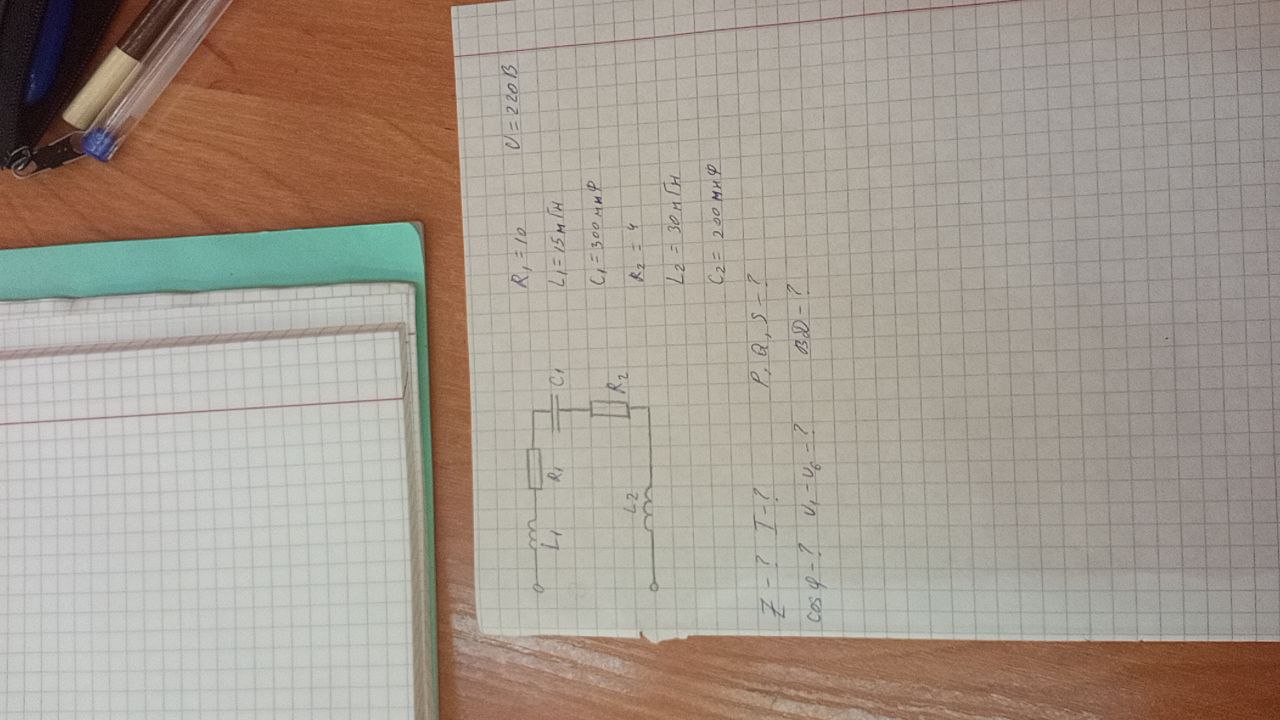 R₁ = 10 U = 220 В
L₁ = 15 мГн
C₁ = 300 мкФ
R₂ = 4
L₂ = 30 мГн
C₂ = 200 мкФ
L₁ R₁ C₁
L₂ R₂
Z - ? I - ? P, Q, S - ?
cos φ - ? U₁ - U₆ - ? ВД - ?